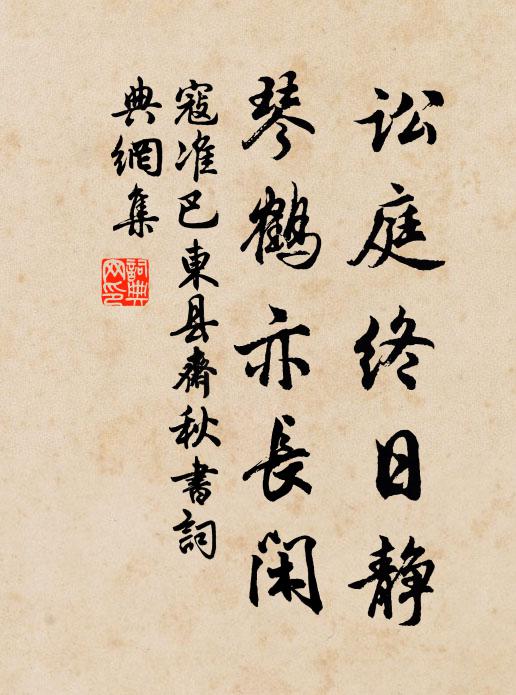 讼庭终日静
琴鹤亦长闲
寇准巴東县齋秋書詞
典網集
詞典
网印